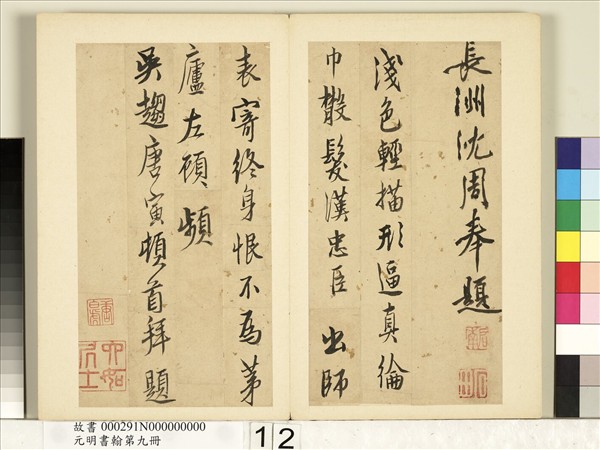 長洲沈周奉題
淺色輕描形逼真綸
巾散髮漢忠臣出師
表寄終身恨不為茅
廬左顧頻
吳趨唐寅頓首拜題
唐寅
六如居士
故書 000291N000000000
元明書翰第九冊
12